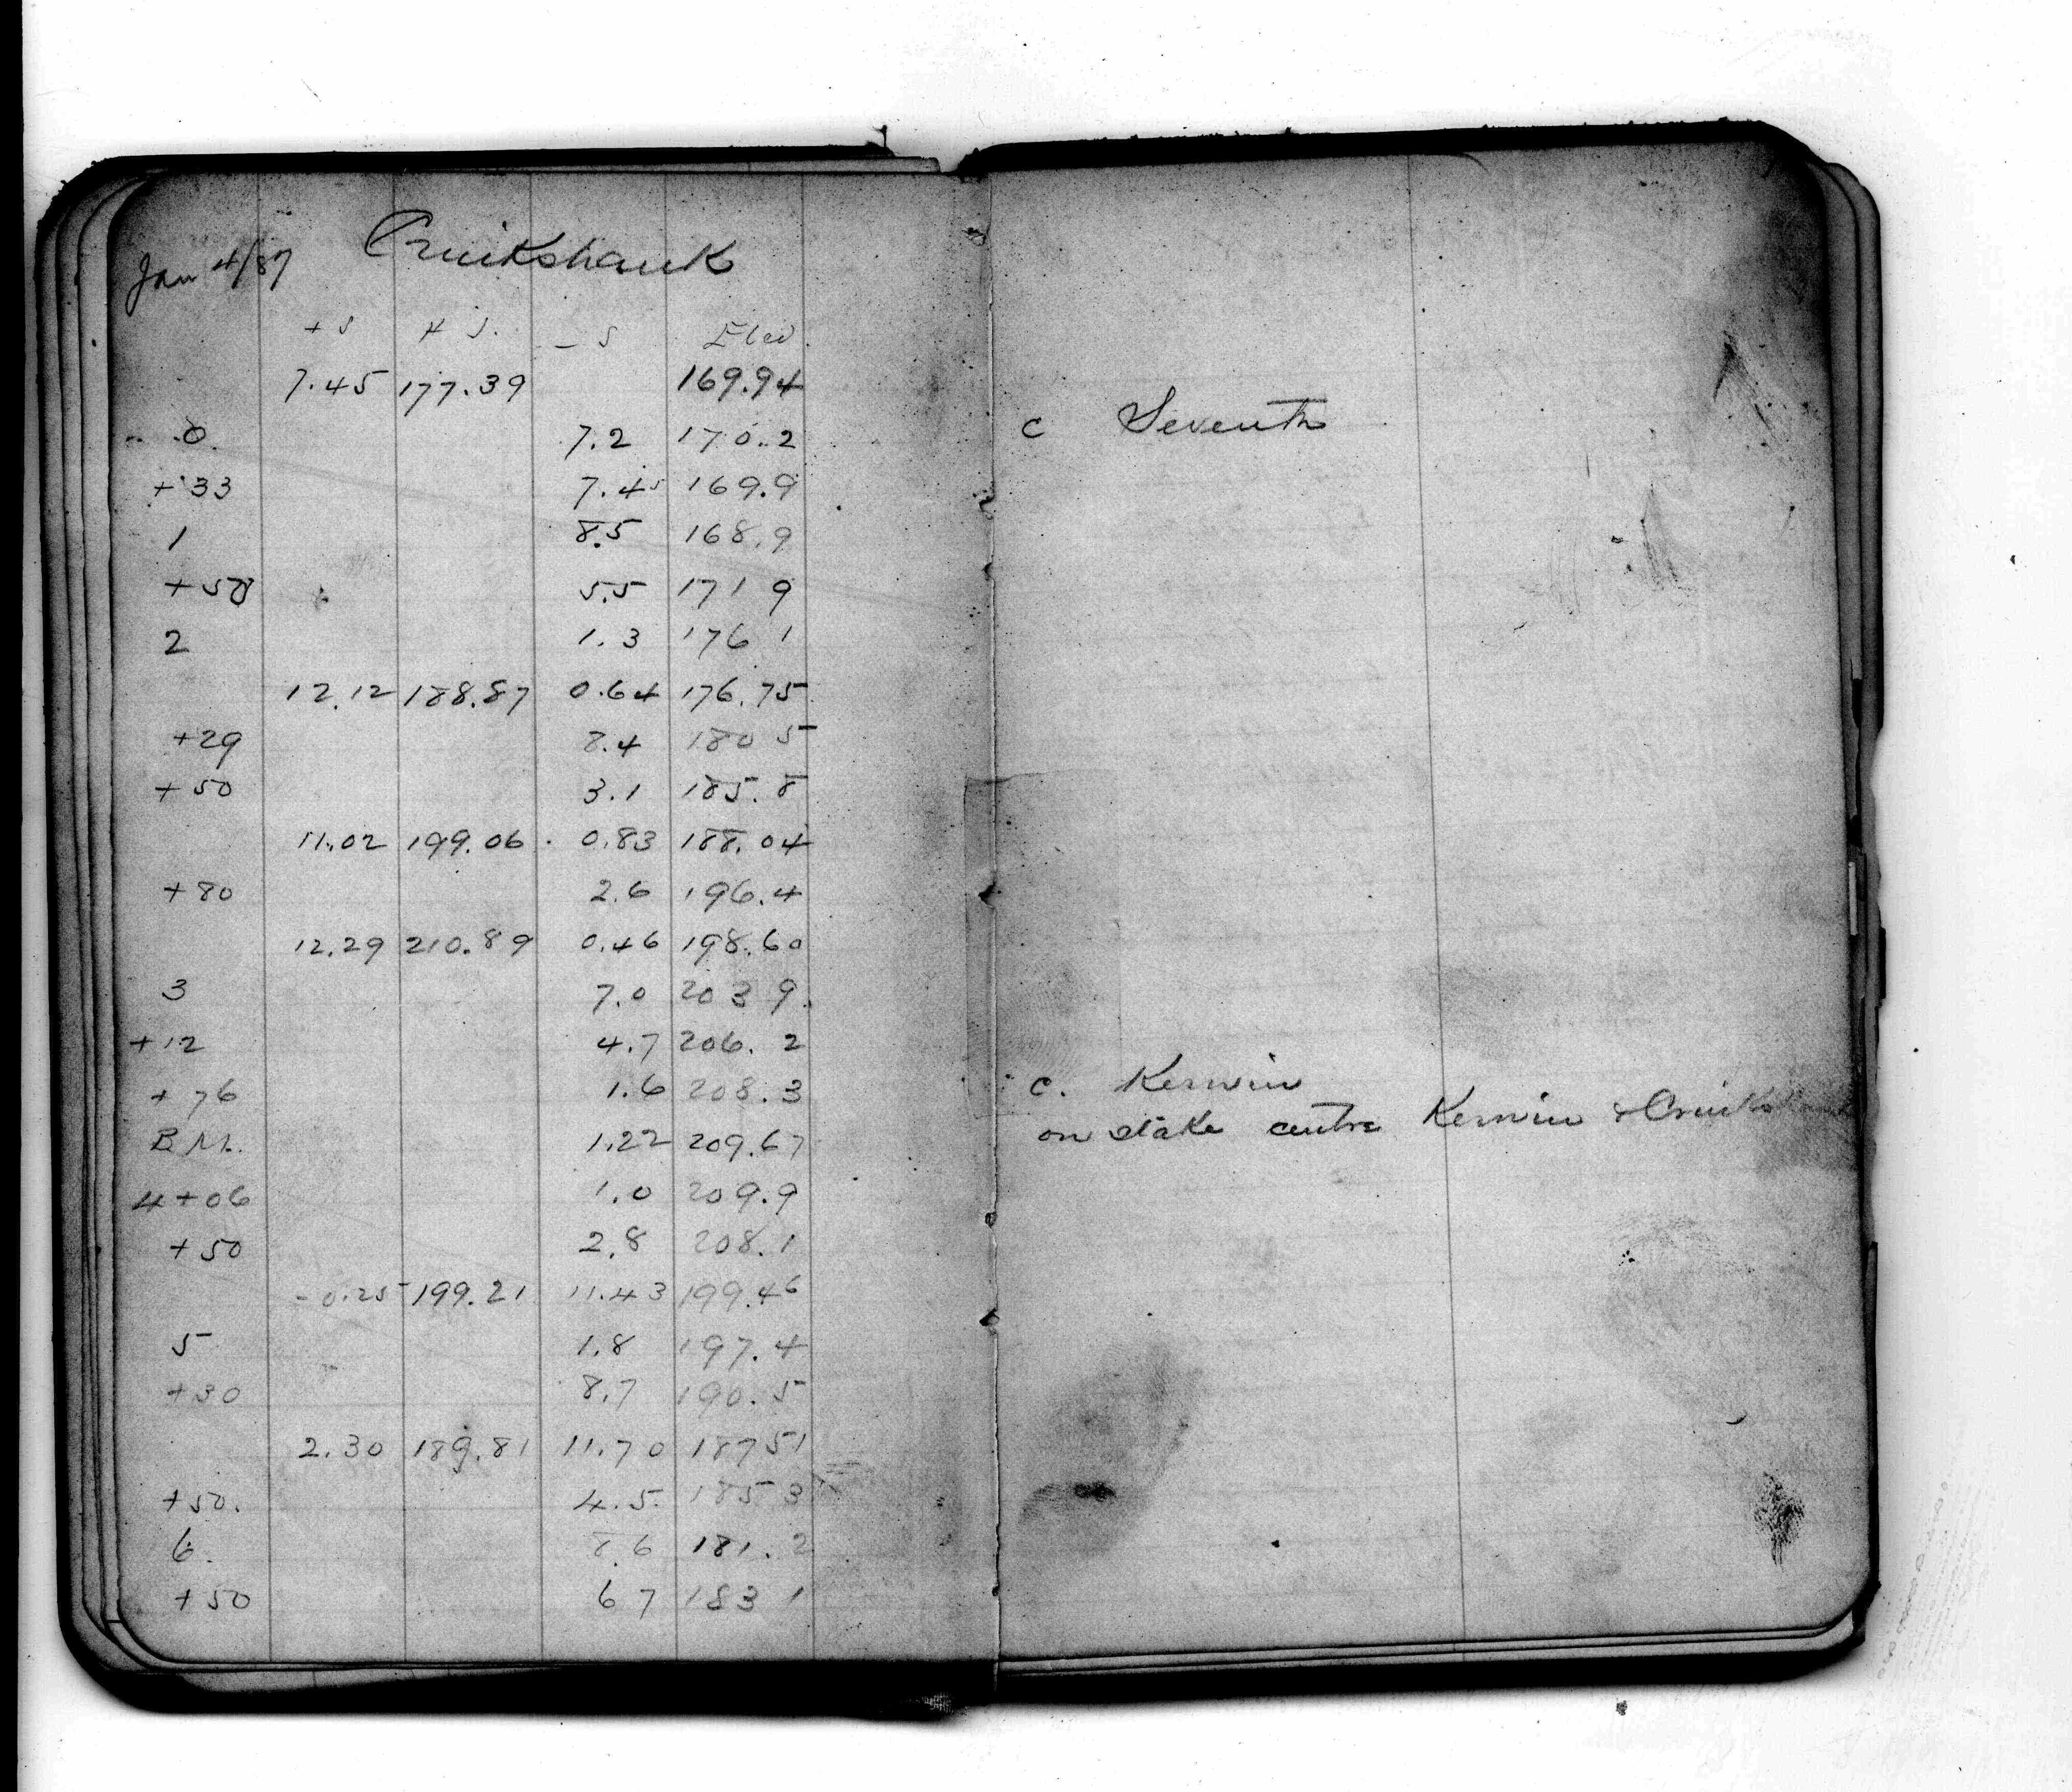 Jan 4/87 Cruikshank
+ S H S. - S Elev.
7.45 177.39 169.94
0 7.2 170.2 c Seventh
+ 33 7.45 169.9
1 8.5 168.9
+ 5.5 171 9
2 1.3 176 1
12.12 188.87 0.64 176.75
+29 8.4 180 5
+ 50 3.1 185.8
11.02 199.06 0.83 188.04
+ 80 2.6 196.4
12.29 210.89 0.46 198.60
3 7.0 203 9.
+ 12 4.7 206. 2
+ 76 1.6 208.3 c. Kerwin
B M. 1.22 209.67 on stake centre Kerwin & Cruikshank
4 + 06 1.0 209.9
+ 50 2.8 208.1
- 0.25 199.21 11.43 199.46
5 1.8 197.4
+30 8.7 190.5
2.30 189.81 11.70 187 51
+ 50. 4.5. 185 3
6. 8.6 181.2
+ 50 6 7 183 1